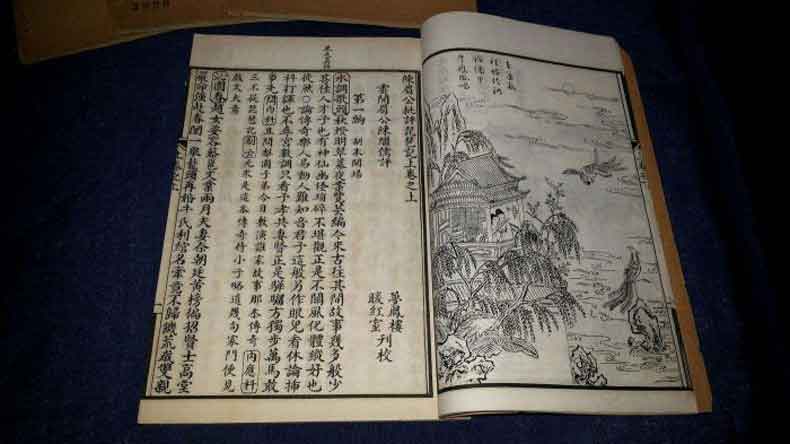 陳眉公批評琵琶記上卷之上
雲間眉公陳繼儒評
夢鳳樓
暖紅室
刊校
第一齣 副末開場
水調歌頭秋燈明翠幕夜案覽芸編今來古往其間故事幾多般少
甚佳人才子也有神仙幽怪瑣碎不堪觀正是不關風化體縱好也
徒然○論傳奇樂人易動人難知音君子這般另作眼兒看休論插
科打諢也不尋宮數調只看子孝共妻賢正是驊騮方獨步萬馬敢
爭先問內科且問子弟今日敷演誰家故事那本傳奇內應科
三不從琵琶記元來是這本傳奇待小子略道幾句家門便見
戲文大意
沁園春趙女姿容蔡邕文業兩月夫妻奈朝廷黃榜徧招賢士高堂
嚴命強赴春闈一舉鰲頭再婚牛氏利綰名牽竟不歸饑荒歲雙親